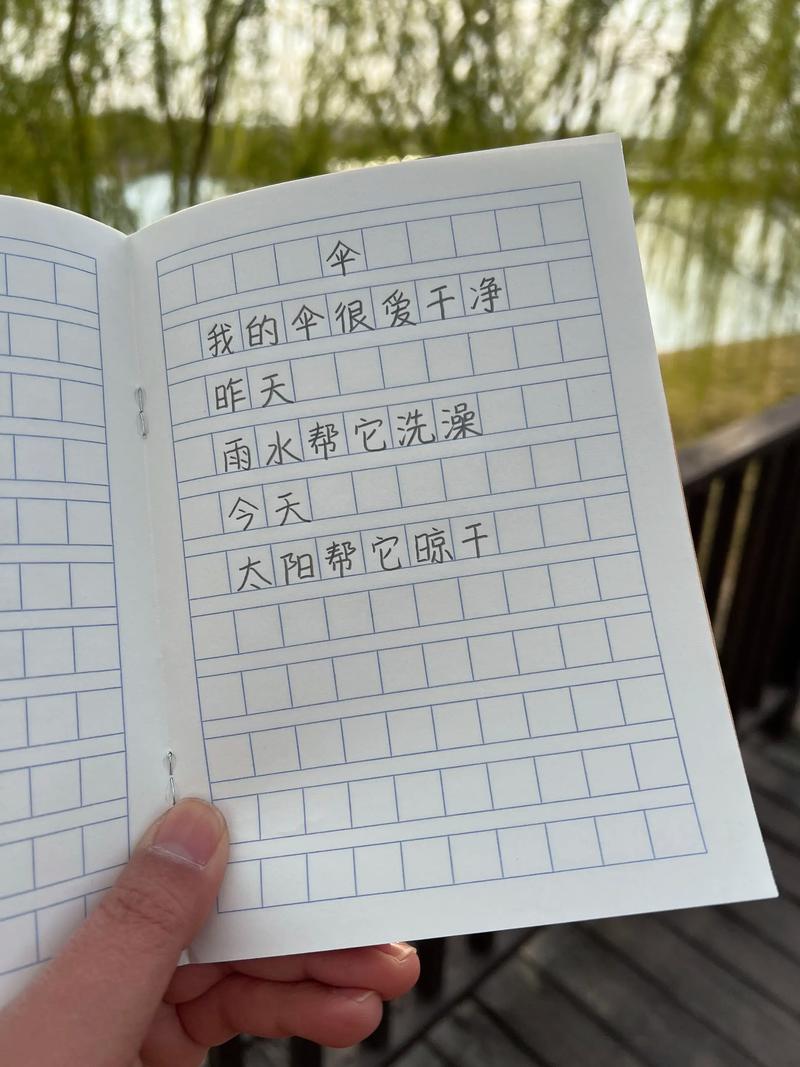 伞
我的伞很爱干净
昨天
雨水帮它洗澡
今天
太阳帮它晾干